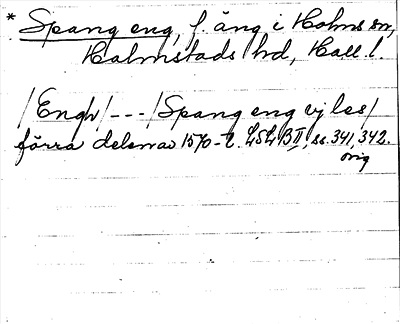 * Spang eng, f. äng i Holms sn,
Halmstads hd, Hall l.
/Engh/---/Spang eng vj les/
förra delen av 1570-t. LSLB II, s. 341, 342.
orig